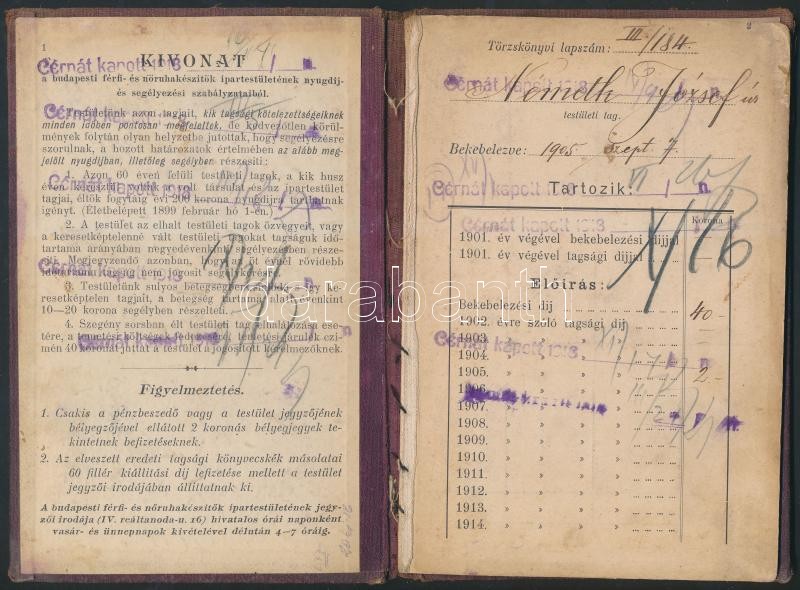 1
KIVONAT
a budapesti férfi- és nőruhakészitők ipartestületének nyugdij-
és segélyezési szabályzataiból.
Testületünk azon tagjait, kik tagsági kötelezettségeiknek
minden időben pontosan megfeleltek, de kedvezőtlen körül-
mények folytán olyan helyzetbe jutottak, hogy segélyezésre
szorulnak, a hozott határozatok értelmében az alább meg-
jelölt nyugdijban, illetőleg segélyben részesiti:
1. Azon 60 éven felüli testületi tagok, a kik husz
éven keresztül voltak a volt társulat és az ipartestület
tagjai, éltök fogytáig évi 200 korona nyugdijra tarthatnak
igényt. (Életbelépett 1899 február hó 1-én.)
2. A testület az elhalt testületi tagok özvegyeit, vagy
a keresetképtelenné vált testületi tagokat tagságuk idő-
tartama arányában negyedévenkint segélyezésben része-
siti. Megjegyzendő azonban, hogy öt évnél rövidebb
időtartamu tagság nem jogosit segélykérésre.
3. Testületünk sulyos betegségben szenvedő s igy ke-
resetképtelen tagjait, a betegség tartama alatt hetenkint
10—20 korona segélyben részelteti.
4. Szegény sorsban élt testületi tag elhalálozása ese-
tére, a temetési költségek fedezésére, temetési járulék czi-
mén 40 koronát juttat a testület a jogositott kérelmezőknek.
Figyelmeztetés.
1. Csakis a pénzbeszedő vagy a testület jegyzőjének
bélyegzőjével ellátott 2 koronás bélyegjegyek te-
kintetnek befizetéseknek.
2. Az elveszett eredeti tagsági könyvecskék másolatai
60 fillér kiállitási dij lefizetése mellett a testület
jegyzői irodájában állittatnak ki.
A budapesti férfi- és nőruhakészitők ipartestületének jegy-
zői irodája (IV. reáltanoda-u. 16) hivatalos órái naponként
vasár- és ünnepnapok kivételével délután 4—7 óráig.
2
Törzskönyvi lapszám: III/184.
Cérnát kapott 1918
Németh József úr
testületi tag.
Bekebelezve: 1905 Szept 7.
Tartozik:
Cérnát kapott 1918
Korona
1901. év végével bekebelezési dijjal
1901. év végével tagsági dijjal
Előirás:
Bekebelezési dij 40 —
1902. évre szóló tagsági dij
1903. » » » »
Cérnát kapott 1918
1904. » » » »
1905. » » » » 2 —
1906. » » » »
1907. » » » »
1908. » » » »
1909. » » » »
1910. » » » »
1911. » » » »
1912. » » » »
1913. » » » »
1914. » » » »
darabanth